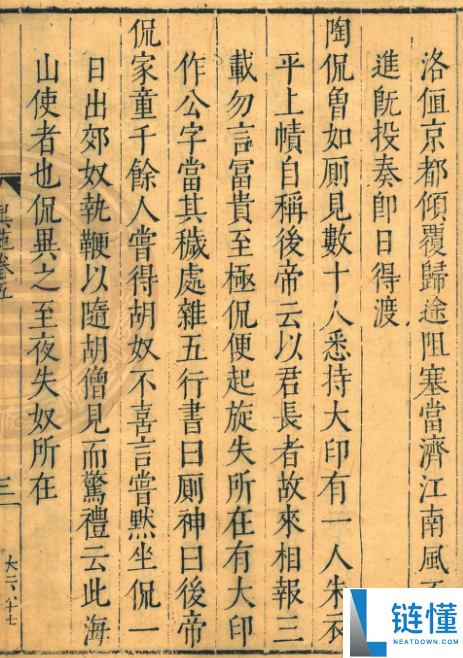 洛值京都傾覆歸途阻塞當濟江南風不
進旣投奏卽日得渡
陶侃曾如厠見數十人悉持大印有一人朱衣
平上幘自稱後帝云以君長者故來相報三
載勿言冨貴至極侃便起旋失所在有大印
作公字當其穢處雜五行書曰厠神曰後帝
侃家童千餘人嘗得胡奴不喜言嘗默坐侃一
日出郊奴執鞭以隨胡僧見而驚禮云此海
山使者也侃異之至夜失奴所在
卷五
三
链懂
NEATDOWN.COM